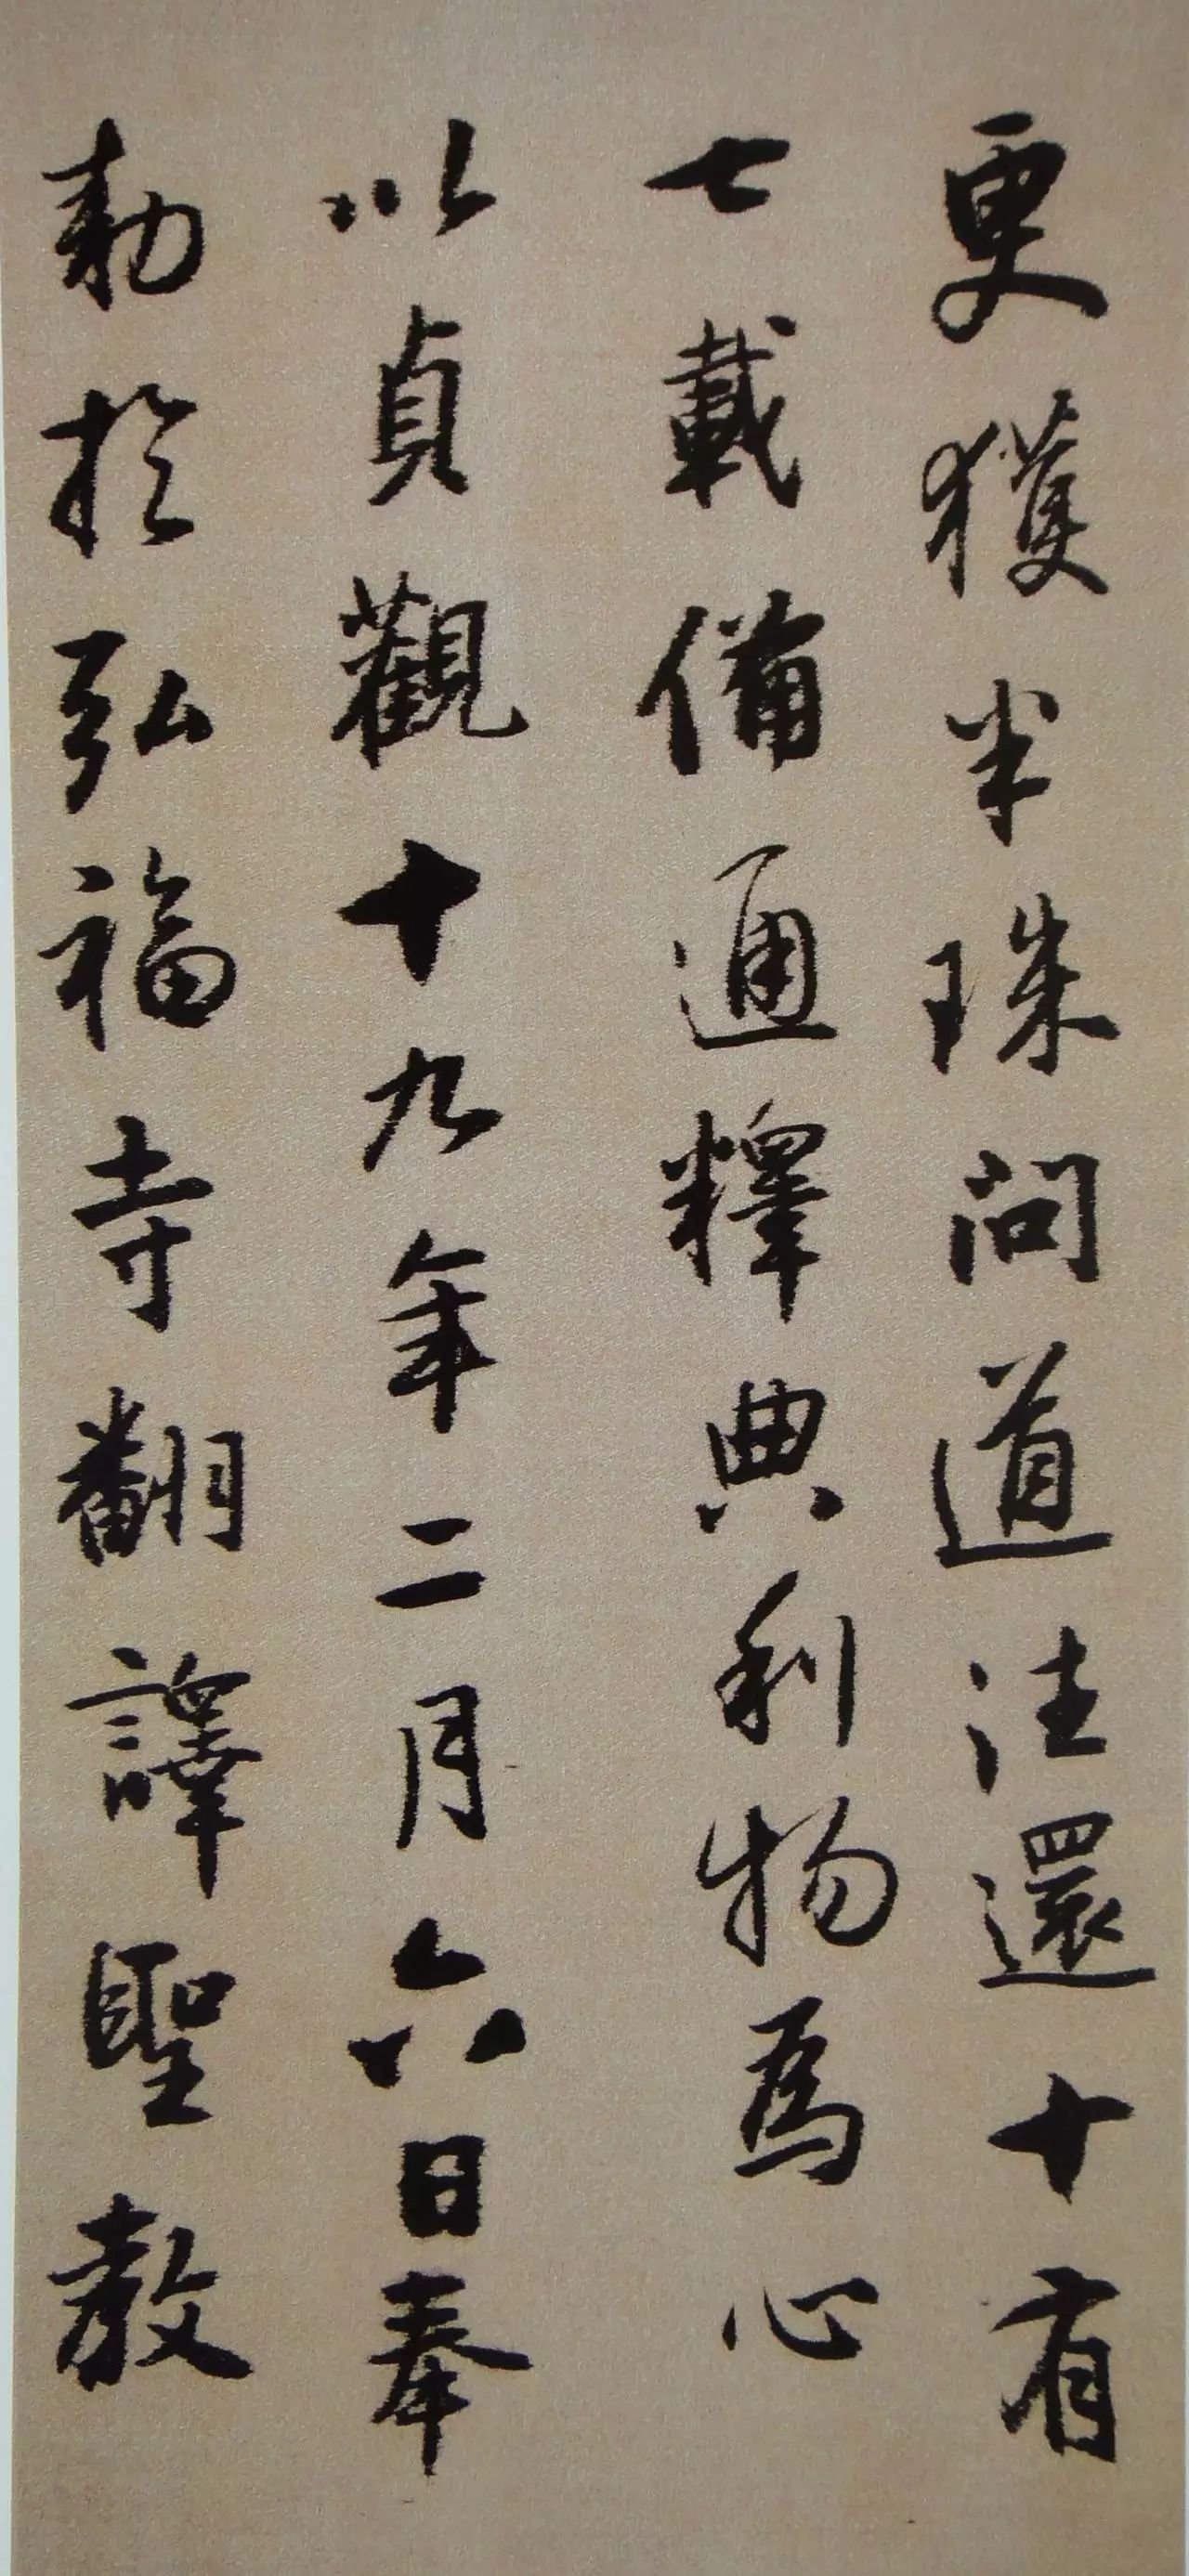 更獲半珠問道往還十有
七載備通釋典利物為心
以貞觀十九年二月六日奉
勅於弘福寺翻譯聖教